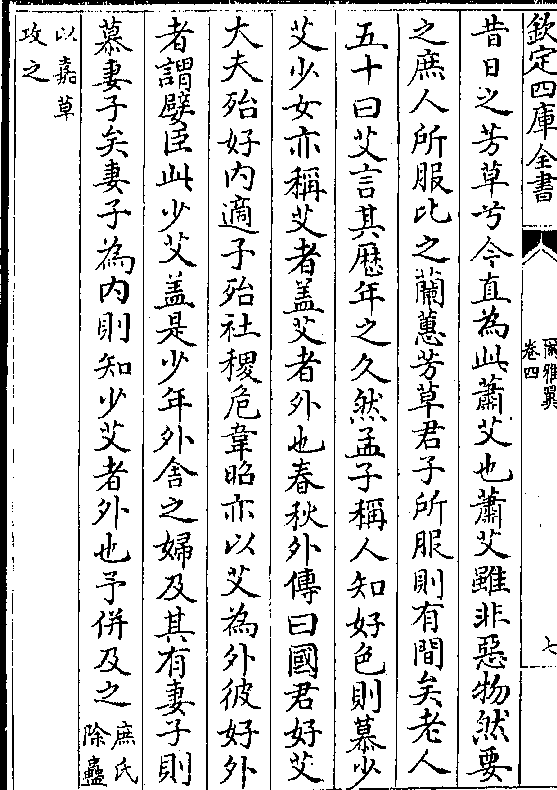 欽定四庫全書
爾雅翼
卷四
七
昔日之芳草兮今直為此蕭艾也蕭艾雖非惡物然要
之庶人所服比之蘭蕙芳草君子所服則有間矣老人
五十曰艾言其歴年之久然孟子稱人知好色則慕少
艾少女亦稱艾者盖艾者外也春秋外傳曰國君好艾
大夫殆好内適子殆社稷危韋昭亦以艾為外彼好外
者謂嬖臣此少艾盖是少年外舍之婦及其有妻子則
慕妻子矣妻子為内則知少艾者外也予併及之庶氏
除蠱
以嘉草
攻之